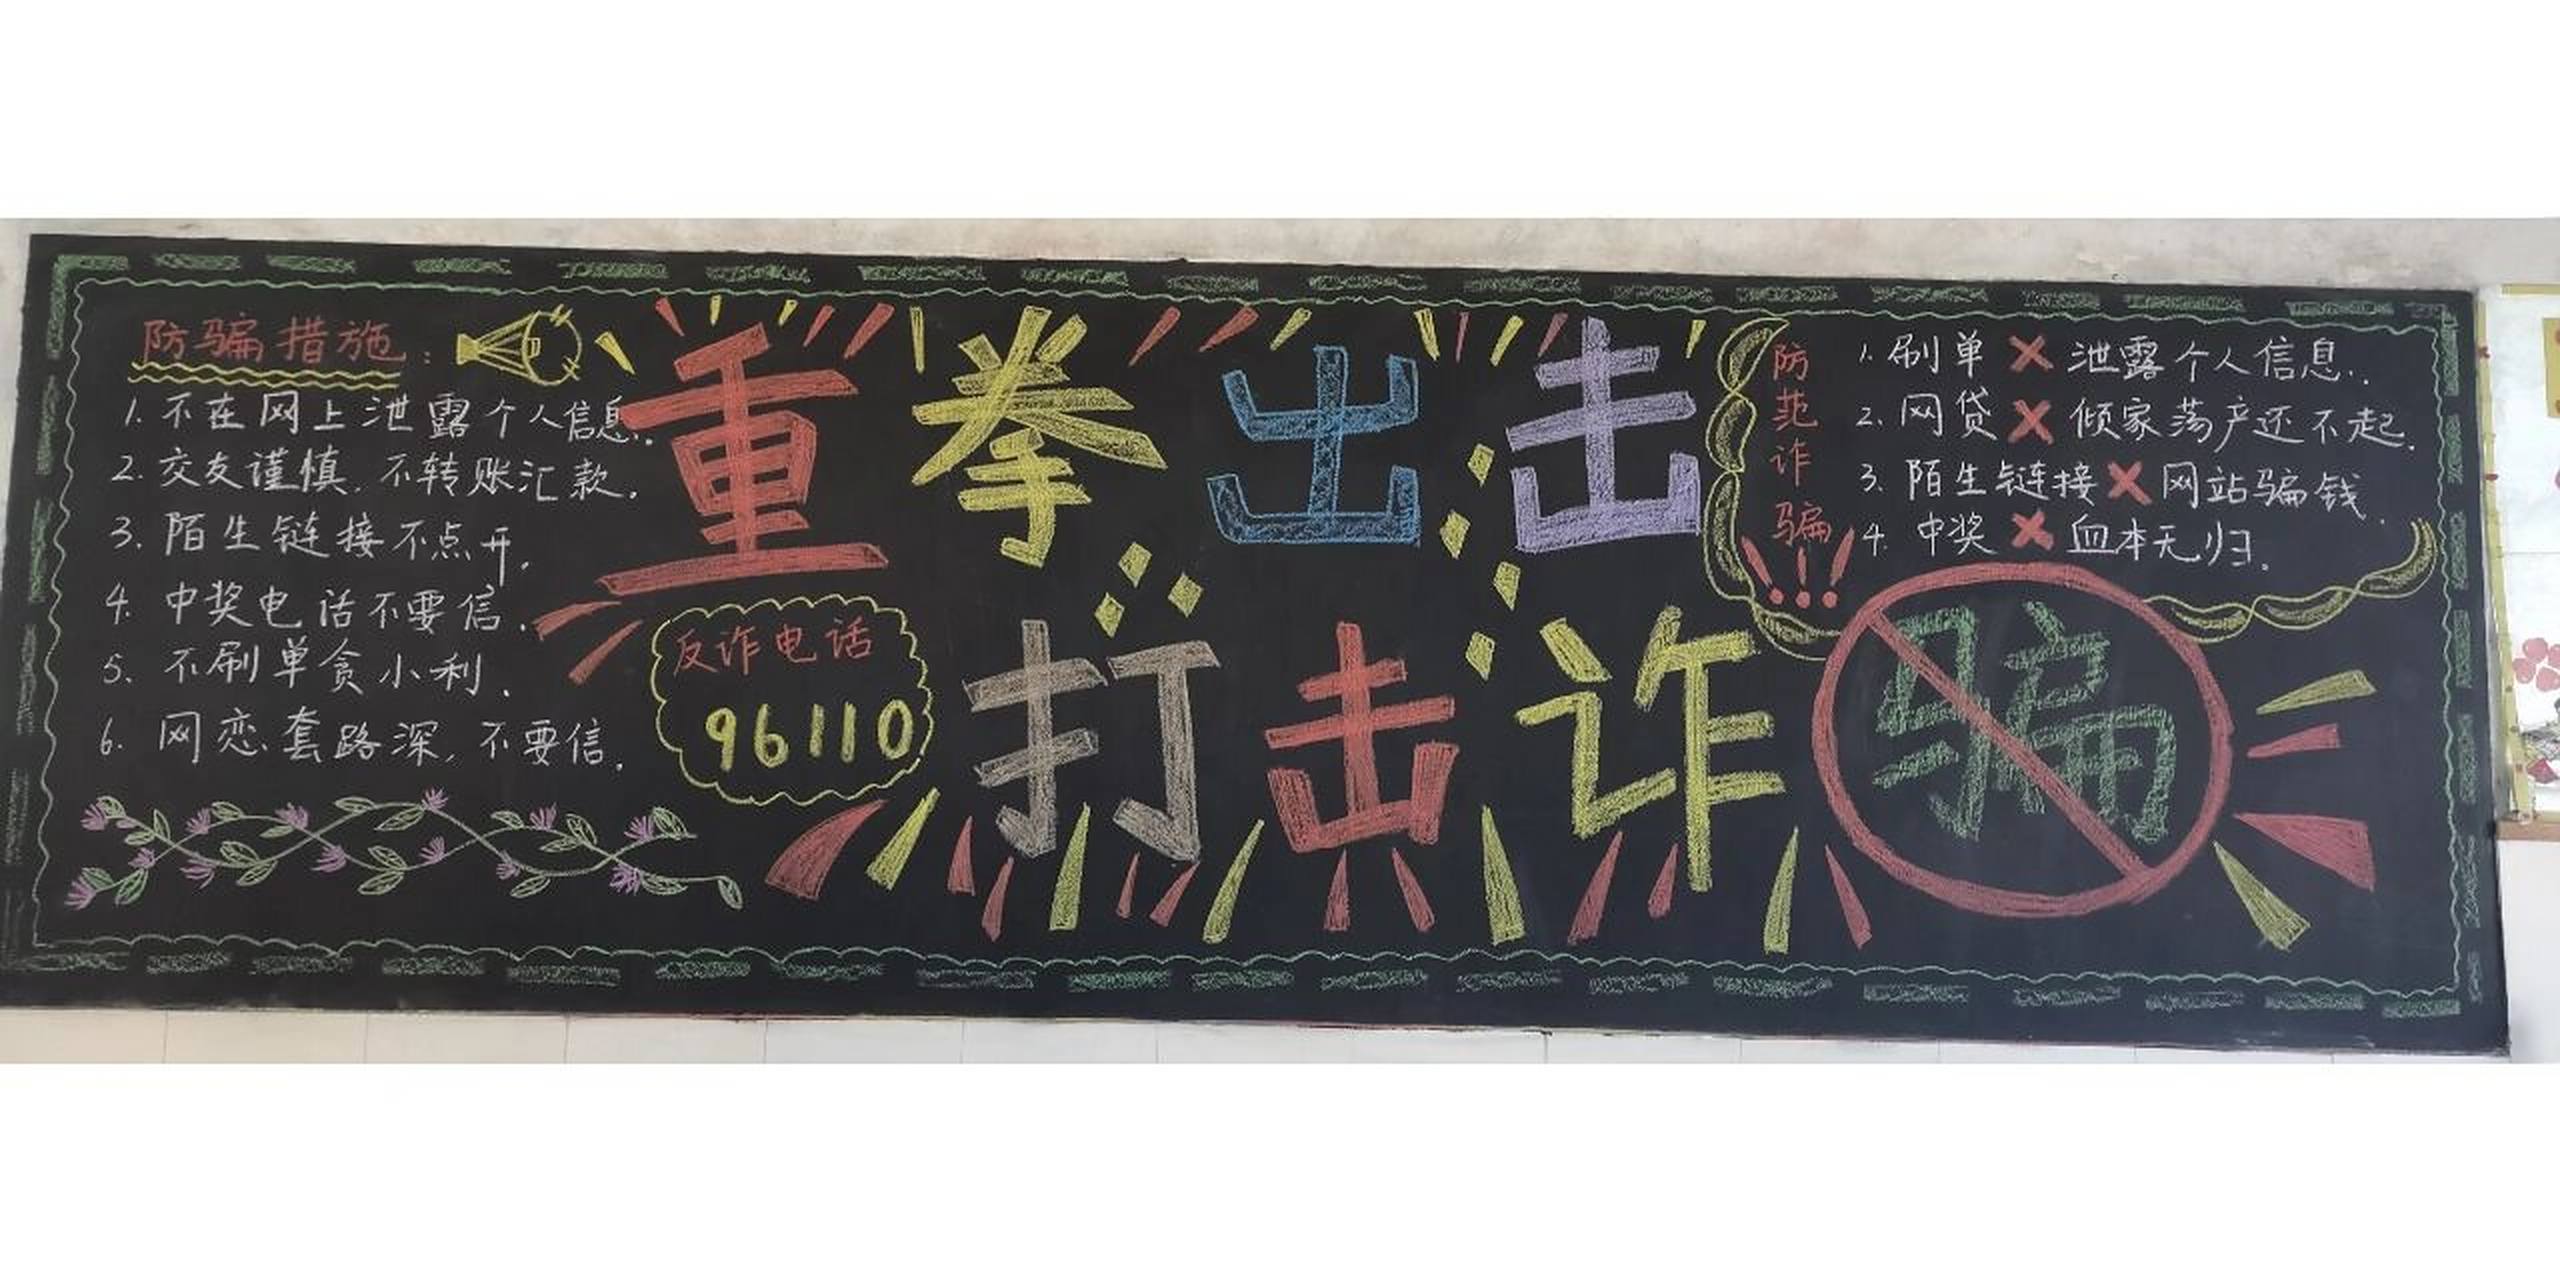 防骗措施:
1. 不在网上泄露个人信息.
2. 交友谨慎,不转账汇款.
3. 陌生链接不点开.
4. 中奖电话不要信.
5. 不刷单贪小利.
6. 网恋套路深,不要信.
重拳出击
打击诈骗
反诈电话
96110
防范诈骗!!!
1. 刷单 ✗ 泄露个人信息.
2. 网贷 ✗ 倾家荡产还不起.
3. 陌生链接 ✗ 网站骗钱.
4. 中奖 ✗ 血本无归.